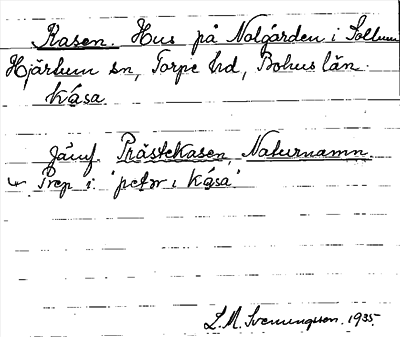 Kasen. Hus på Nolgården i Sollum
Hjärtum sn, Torpe hd, Bohuslän.
kása.
Jämf. Prästekasen, Naturnamn.
Prep i: "petər i kása"
L.M. Svenungsson. 1935.